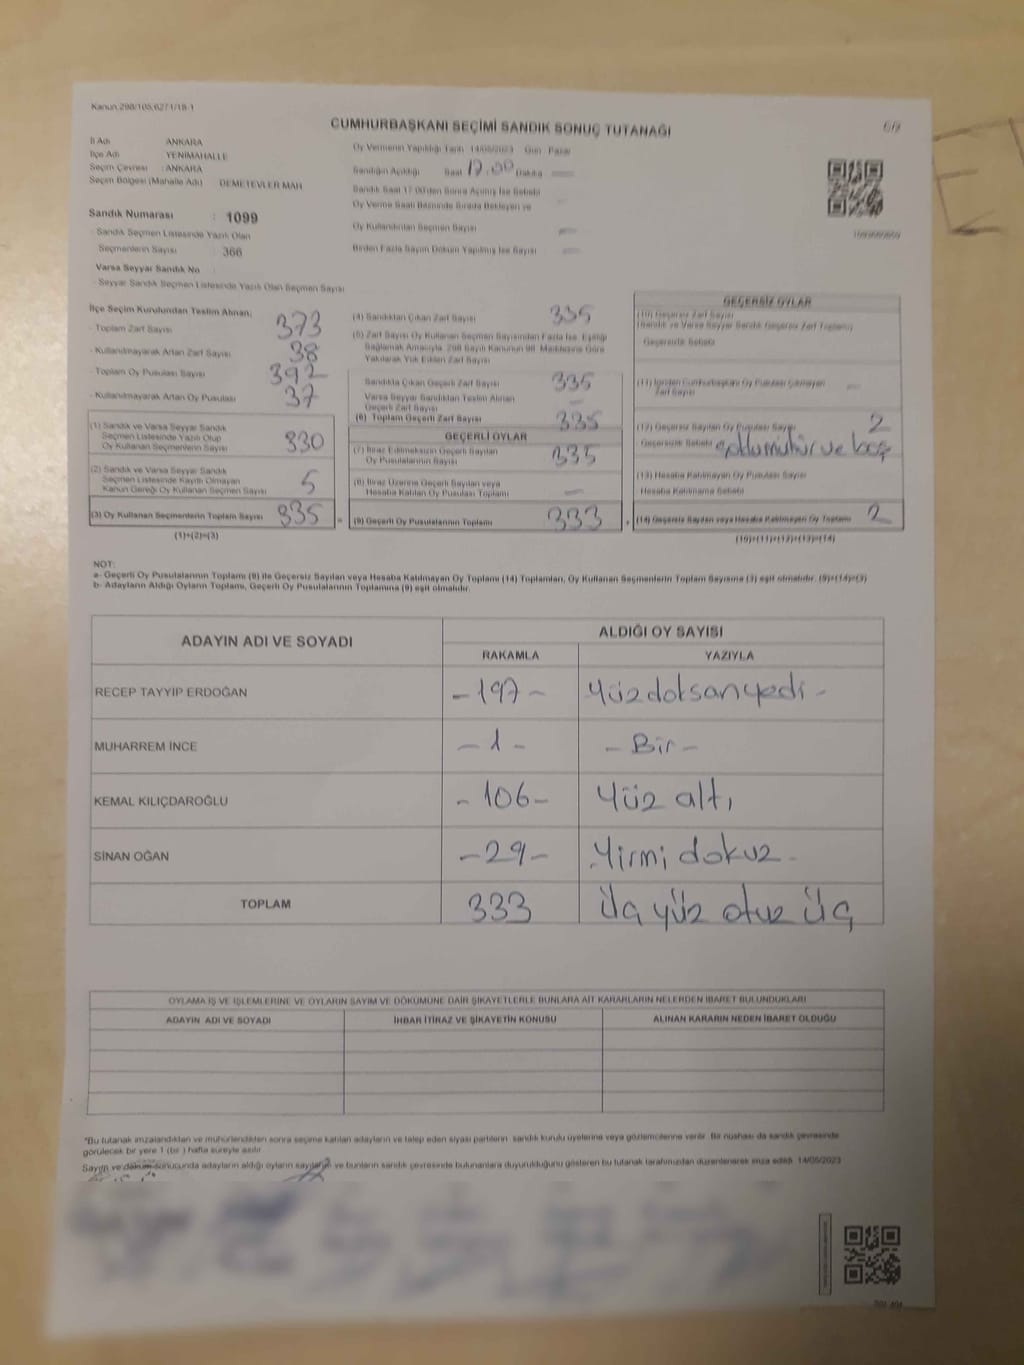 Kanun 298/105,6271/18-1
CUMHURBAŞKANI SEÇİMİ SANDIK SONUÇ TUTANAĞI
İl Adı ANKARA
İlçe Adı YENİMAHALLE
Seçim Çevresi : ANKARA
Seçim Bölgesi (Mahalle Adı) DEMETEVLER MAH
Sandık Numarası : 1099
- Sandık Seçmen Listesinde Yazılı Olan
Seçmenlerin Sayısı : 366
Varsa Seyyar Sandık No
- Seyyar Sandık Seçmen Listesinde Yazılı Olan Seçmen Sayısı
Oy Vermenin Yapıldığı Tarih 14/05/2023 Gün Pazar
Sandığın Açıldığı Saat 17.00 Dakika
Sandık Saat 17:00'den Sonra Açılmış İse Sebebi
Oy Verme Saati Bitiminde Sırada Bekleyen ve
Oy Kullandırılan Seçmen Sayısı
Birden Fazla Sayım Döküm Yapılmış İse Sayısı
İlçe Seçim Kurulundan Teslim Alınan;
- Toplam Zarf Sayısı 373
- Kullanılmayarak Artan Zarf Sayısı 38
- Toplam Oy Pusulası Sayısı 392
- Kullanılmayarak Artan Oy Pusulası 37
(1) Sandık ve Varsa Seyyar Sandık
Seçmen Listesinde Yazılı Olup
Oy Kullanan Seçmenlerin Sayısı 330
(2) Sandık ve Varsa Seyyar Sandık
Seçmen Listesinde Kaydı Olmayan
Kanun Gereği Oy Kullanan Seçmen Sayısı 5
(3) Oy Kullanan Seçmenlerin Toplam Sayısı 335
(1)+(2)=(3)
(4) Sandıktan Çıkan Zarf Sayısı 335
(5) Zarf Sayısı Oy Kullanan Seçmen Sayısından Fazla İse, Eşitliği
Sağlamak Amacıyla, 298 Sayılı Kanunun 98. Maddesine Göre
Yakılarak Yok Edilen Zarf Sayısı
Sandıkta Çıkan Geçerli Zarf Sayısı 335
Varsa Seyyar Sandıktan Teslim Alınan
Geçerli Zarf Sayısı -
(6) Toplam Geçerli Zarf Sayısı 335
GEÇERLİ OYLAR
(7) İtiraz Edilmeksizin Geçerli Sayılan
Oy Pusulalarının Sayısı 335
(8) İtiraz Üzerine Geçerli Sayılan veya
Hesaba Katılan Oy Pusulası Toplamı -
= (9) Geçerli Oy Pusulalarının Toplamı 333
GEÇERSİZ OYLAR
(10) Geçersiz Zarf Sayısı
(Sandık ve Varsa Seyyar Sandık Geçersiz Zarf Toplamı)
Geçersizlik Sebebi
(11) İçinden Cumhurbaşkanı Oy Pusulası Çıkmayan
Zarf Sayısı
(12) Geçersiz Sayılan Oy Pusulası Sayısı 2
Geçersizlik Sebebi ve boş
(13) Hesaba Katılmayan Oy Pusulası Sayısı
Hesaba Katılmama Sebebi
+ (14) Geçersiz Sayılan veya Hesaba Katılmayan Oy Toplamı 2
(10)+(11)+(12)+(13)=(14)
NOT:
a- Geçerli Oy Pusulalarının Toplamı (9) ile Geçersiz Sayılan veya Hesaba Katılmayan Oy Toplamı (14) Toplamları, Oy Kullanan Seçmenlerin Toplam Sayısına (3) eşit olmalıdır. (9)+(14)=(3)
b- Adayların Aldığı Oyların Toplamı, Geçerli Oy Pusulalarının Toplamına (9) eşit olmalıdır.
ADAYIN ADI VE SOYADI ALDIĞI OY SAYISI
RAKAMLA YAZIYLA
RECEP TAYYİP ERDOĞAN -197- Yüzdoksanyedi -
MUHARREM İNCE -1- -Bir-
KEMAL KILIÇDAROĞLU -106- Yüz altı
SİNAN OĞAN -29- Yirmi dokuz -
TOPLAM 333 Üç yüz otuz üç
OYLAMA İŞ VE İŞLEMLERİNE VE OYLARIN SAYIM VE DÖKÜMÜNE DAİR ŞİKAYETLERLE BUNLARA AİT KARARLARIN NELERDEN İBARET BULUNDUKLARI
ADAYIN ADI VE SOYADI İHBAR İTİRAZ VE ŞİKAYETİN KONUSU ALINAN KARARIN NEDEN İBARET OLDUĞU
*Bu tutanak imzalandıktan ve mühürlendikten sonra seçime katılan adayların ve talep eden siyasi partilerin sandık kurulu üyelerine veya gözlemcilerine verilir. Bir nüshası da sandık çevresinde
görülecek bir yere 1 (bir ) hafta süreyle asılır.
Sayım ve döküm sonucunda adayların aldığı oyların sayılarını ve bunların sandık çevresinde bulunanlara duyurulduğunu gösteren bu tutanak tarafımızdan düzenlenerek imza edildi. 14/05/2023